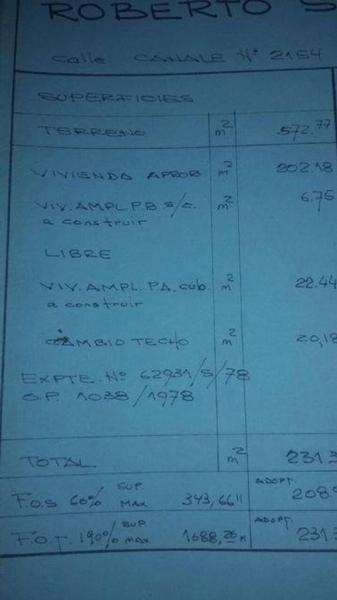 ROBERTO S
Calle CANALE Nº 2154
SUPERFICIES
TERRENO m² 572.77
VIVIENDA APROB m² 202.18
VIV. AMPL. P.B. s/c. m² 6.75
a construir
LIBRE
VIV. AMPL. P.A. cub. m² 22.44
a construir
CAMBIO TECHO m² 20,18
EXPTE. Nº 62931/S/78
O.P. 1038/1978
TOTAL m² 231.3
F.O.S 60% SUP. MAX 343,66 ADOPT. 208.9
F.O.T. 190% SUP MAX 1088,26 ADOPT. 231.3